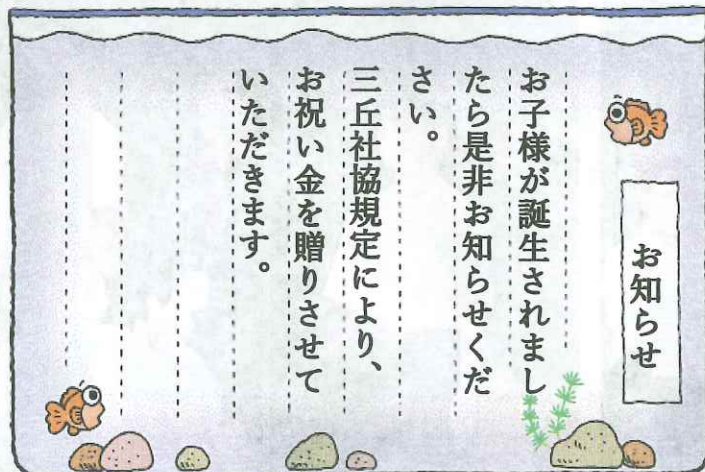 お知らせ
お子様が誕生されまし
たら是非お知らせくだ
さい。
三丘社協規定により、
お祝い金を贈りさせて
いただきます。